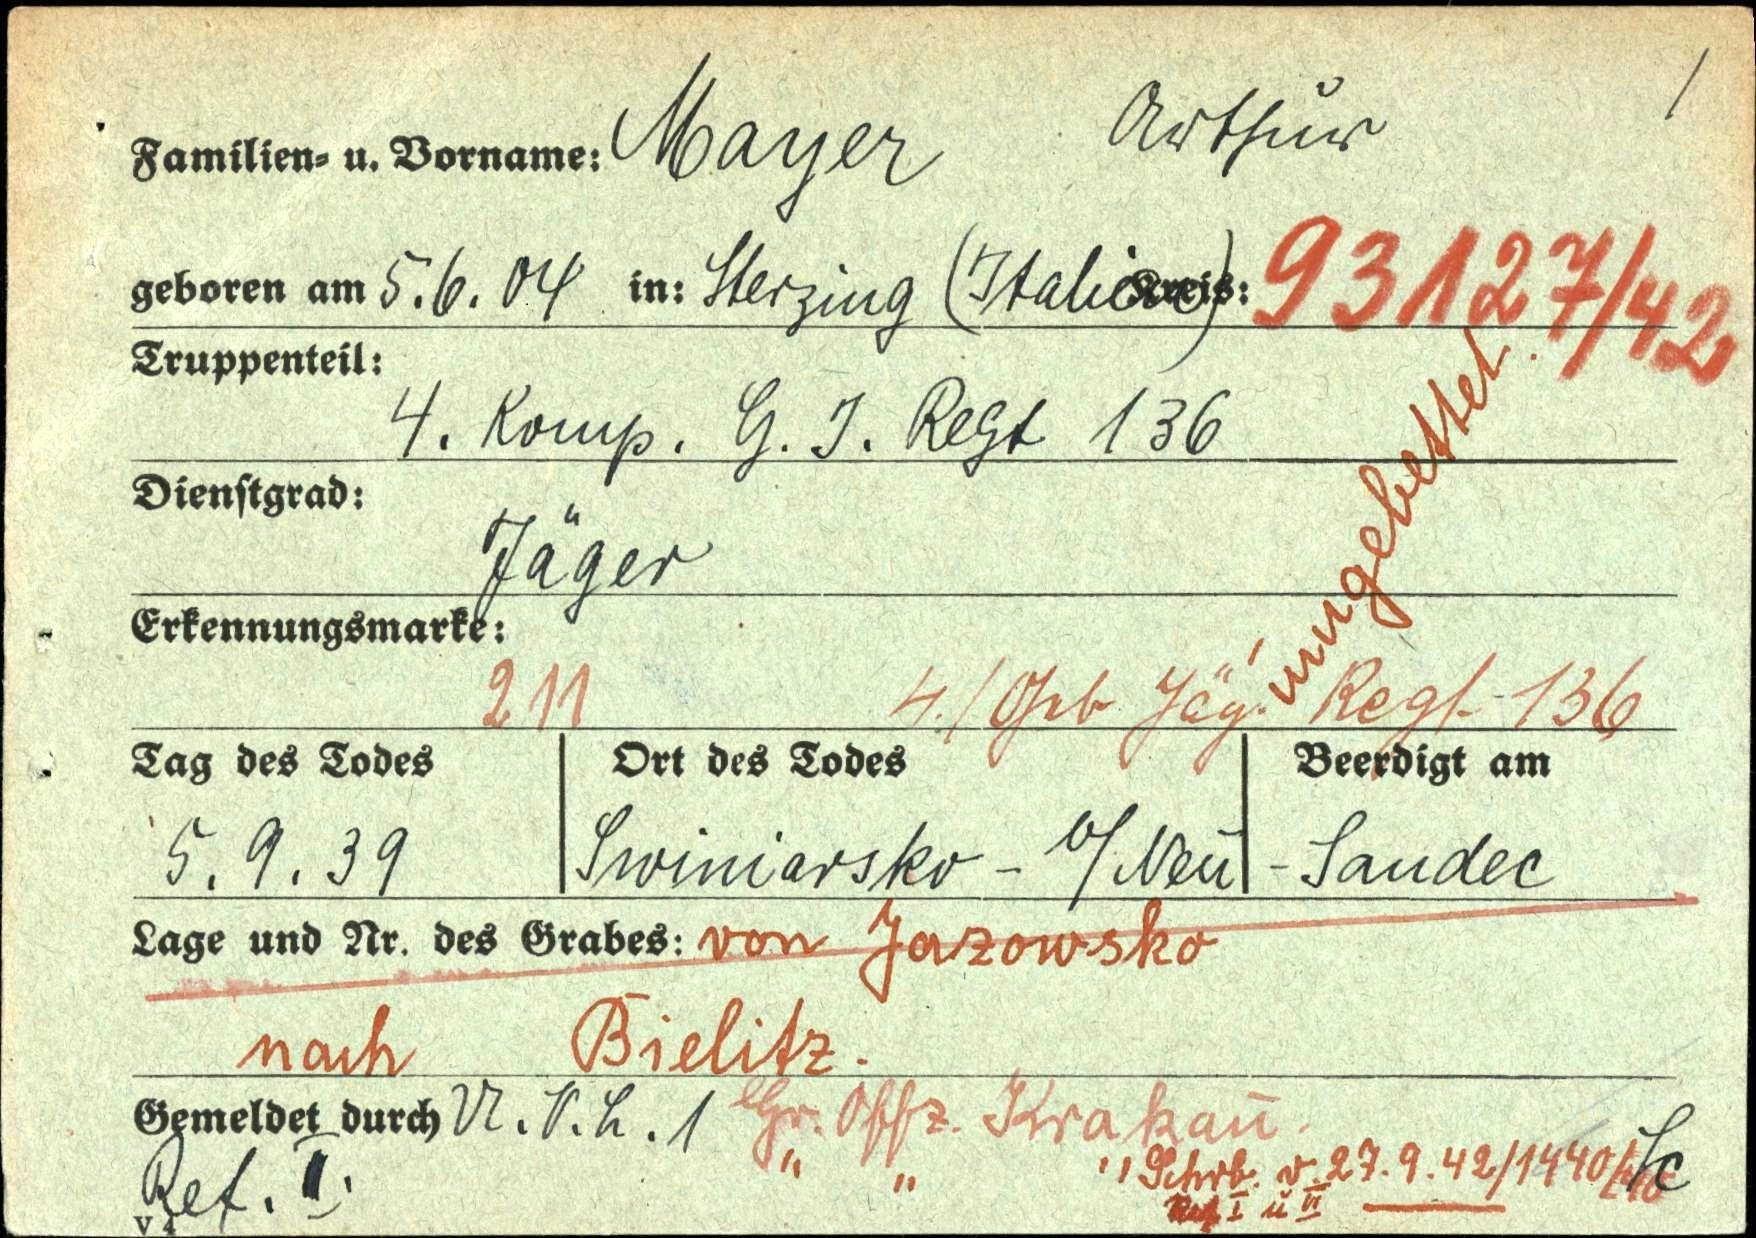 Familien- u. Vorname: Mayer Arthur /
geboren am 5.6.04 in: Sterzing (Italien) Kreis: 93127/42
Truppenteil:
4. Komp. G. J. Regt 136
umgebettet.
Dienstgrad:
Jäger
Erkennungsmarke:
211 4./Geb. Jäg. Regt. 136
Tag des Todes Ort des Todes Beerdigt am
5.9.39 Swiniarsko - b/Neu - Sandec
Lage und Nr. des Grabes: von Jazowsko
nach Bielitz.
Gemeldet durch V. L. 1 Gr. Offz. Krakau.
Ref. I. " " " Schrb. v. 27.9.42/1440/
Ref I u VI
V 4